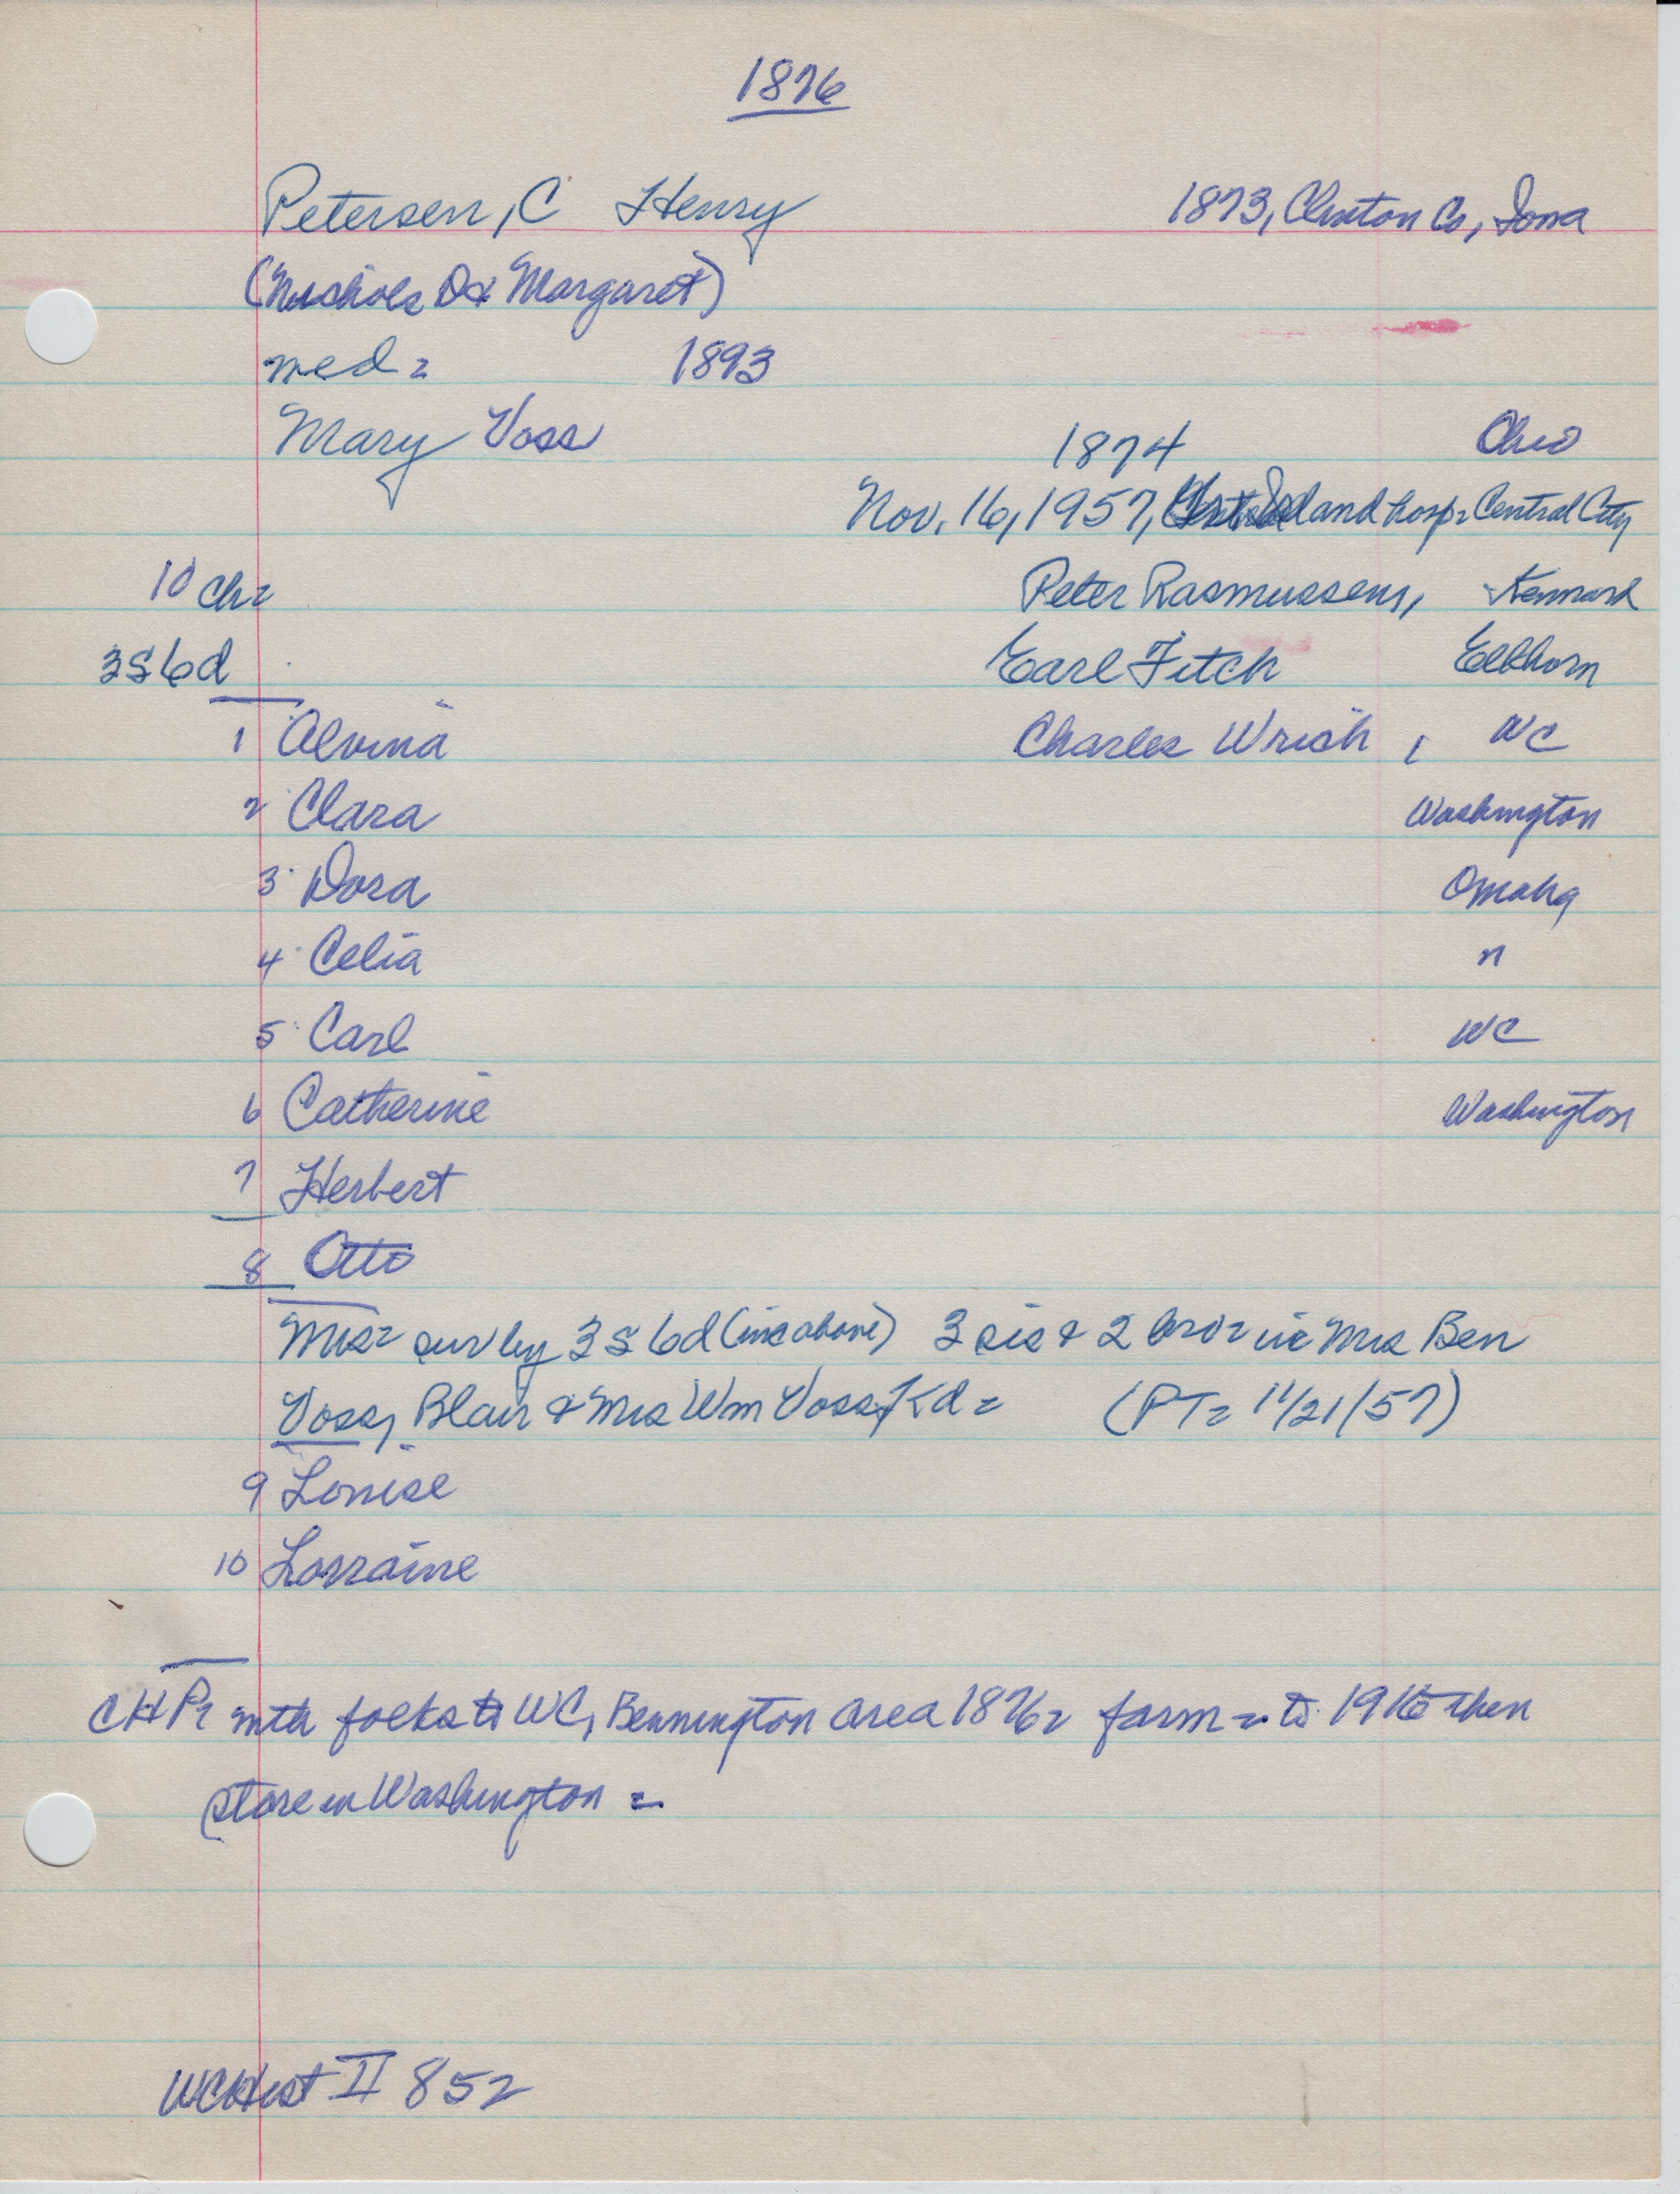 1876
Petersen, C Henry 1873, Clinton Co, Iowa
(Nichols D & Margaret)
med = 1893
Mary Voss 1874 Ohio
Nov. 16, 1957, Island hosp = Central City
10 ch = Peter Rasmussens, Kennard
3s 6d Earl Fitch Elkhorn
1 Alvina Charles Wrich, WC
2 Clara Washington
3 Dora Omaha
4 Celia "
5 Carl WC
6 Catherine Washington
7 Herbert
8 Otto
Mrs = sur by 3s 6d (inc above) 3 sis & 2 bro = inc Mrs Ben
Voss, Blair & Mrs Wm Voss, Kd = (PT = 11/21/57)
9 Louise
10 Lorraine
CHP = with folks to WC, Bennington area 1876 = farm = to 1916 then
store in Washington =
WCHist II 852